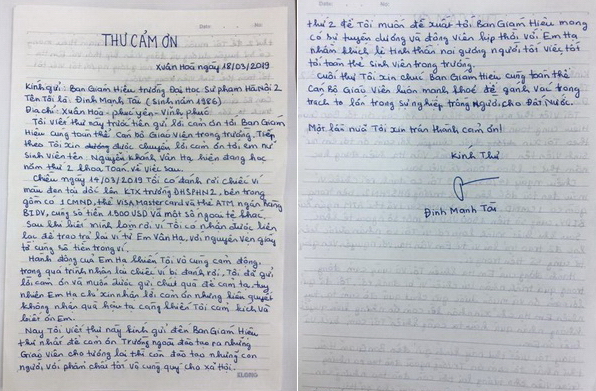 THƯ CẢM ƠN
Xuân Hoà ngày 18/03/2019
Kính gửi: Ban Giám Hiệu trường Đại Học Sư phạm Hà Nội 2
Tên Tôi là: Đinh Mạnh Tài (Sinh năm 1986)
Địa chỉ: Xuân Hoà - Phúc yên - Vĩnh phúc
Tôi Viết thư này trước tiên gửi lời cảm ơn tới Ban Giám
Hiệu cùng toàn thể Cán bộ Giáo Viên trong trường. Tiếp
theo Tôi xin được chuyển lời cảm ơn tới em nữ
Sinh Viên tên: Nguyễn Khánh Vân Hạ hiện đang học
năm thứ 2 khoa Toán. về Việc sau.
Chiều ngày 14/03/2019 Tôi có đánh rơi chiếc ví
màu đen tại dốc lên KTX trường ĐHSPHN2, bên trong
gồm có 1 CMND, thẻ VISA, Mastercard và thẻ ATM ngân hàng
BIDV, cùng số tiền 1.500 USD và một số ngoại tệ khác.
Sau khi biết mình làm rơi ví Tôi có nhận được liên
lạc để trao trả lại ví từ Em Vân Hạ, với nguyên vẹn giấy
tờ cùng số tiền trong ví.
Hành động của Em Hạ khiến Tôi vô cùng cảm động,
trong quá trình nhận lại chiếc ví bị đánh rơi. Tôi đã gửi
lời cảm ơn và muốn được gửi chút quà để cảm tạ, tuy
nhiên Em Hạ chỉ xin nhận lời cảm ơn nhưng kiên quyết
không nhận quà hậu tạ càng khiến Tôi cảm kích và
biết ơn Em.
Nay Tôi Viết thư này kính gửi đến Ban Giám Hiệu
thứ nhất để cảm ơn Trường ngoài đào tạo ra những
Giáo Viên cho tương lai thì còn đào tạo những con
người, với phẩm chất tốt vô cùng quý cho xã hội.
KLONG
thứ 2 để Tôi muốn đề xuất tới Ban Giám Hiệu mong
có sự tuyên dương và động viên kịp thời với Em Hạ
nhằm khích lệ tinh thần nơi gương người tốt việc tốt
tới toàn thể Sinh Viên trong trường.
Cuối thư Tôi xin chúc Ban Giám Hiệu cùng toàn thể
Cán Bộ Giáo Viên luôn mạnh khoẻ để gánh vác trọng
trách to lớn trong sự nghiệp trồng Người cho Đất Nước.
Một lần nữa Tôi xin trân thành cảm ơn!
Kính Thư
Đinh Mạnh Tài